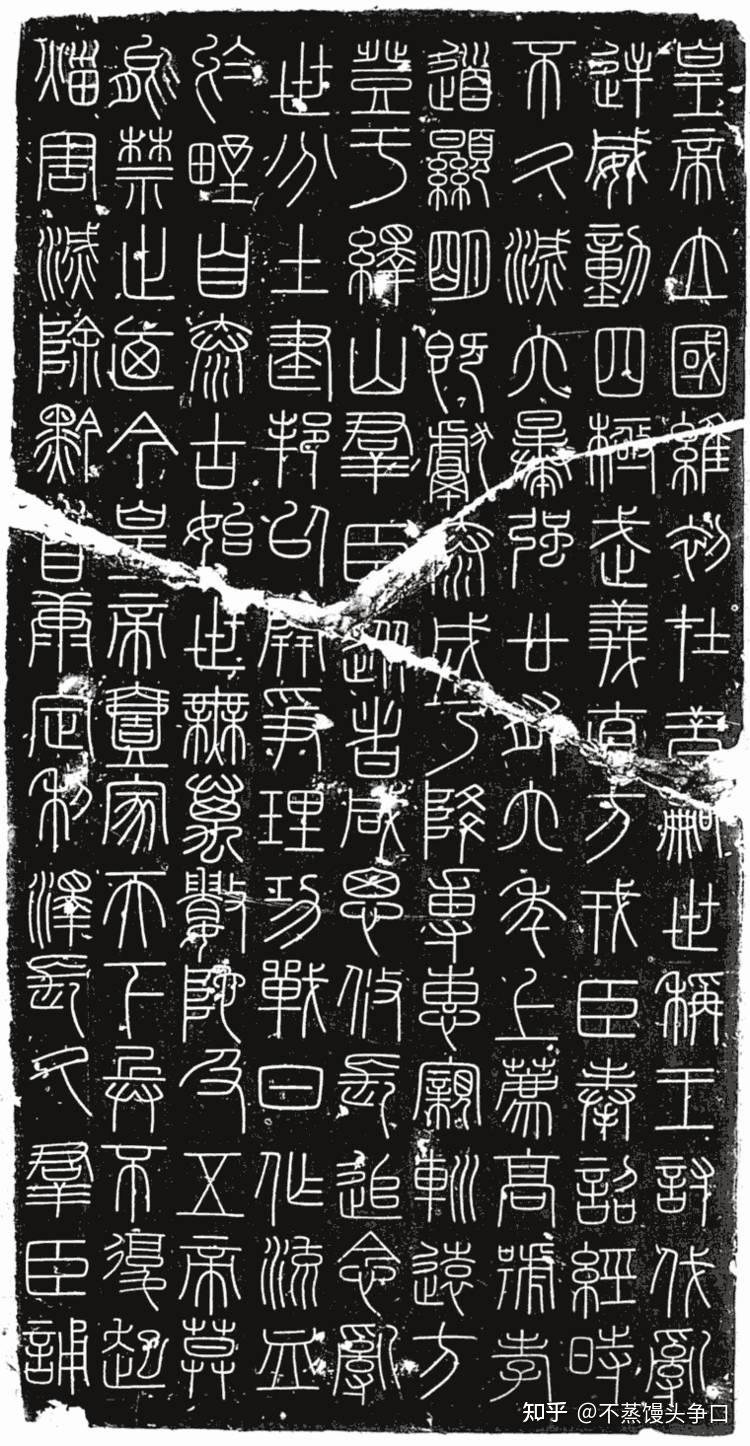 皇帝立國維初在昔嗣世稱王討伐亂
逆威動四極武義直方戎臣奉詔經時
不久滅六暴強廿有六年上薦高號孝
道顯明既獻泰成乃降專惠親巡遠方
登于繹山群臣從者咸思攸長追念亂
世分土建邦以開爭理功戰日作流血
於野自泰古始世無萬數陀及五帝莫
能禁止迺今皇帝壹家天下兵不復起
災害滅除黔首康定利澤長久群臣誦
知乎 @不蒸馒头争口